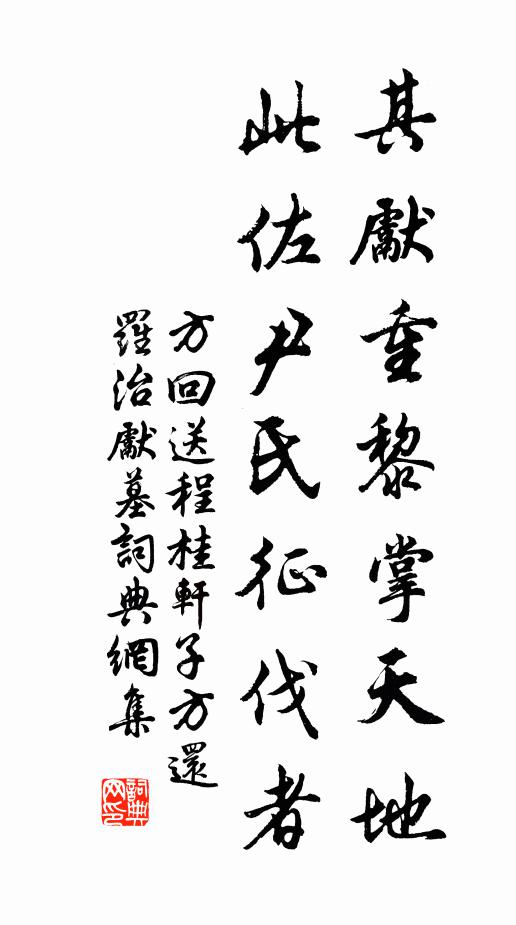 其獻重黎掌天地
此佐尹氏征伐者
方回送程桂軒子方還
羅治獻墓詞典網集
詞典
网印